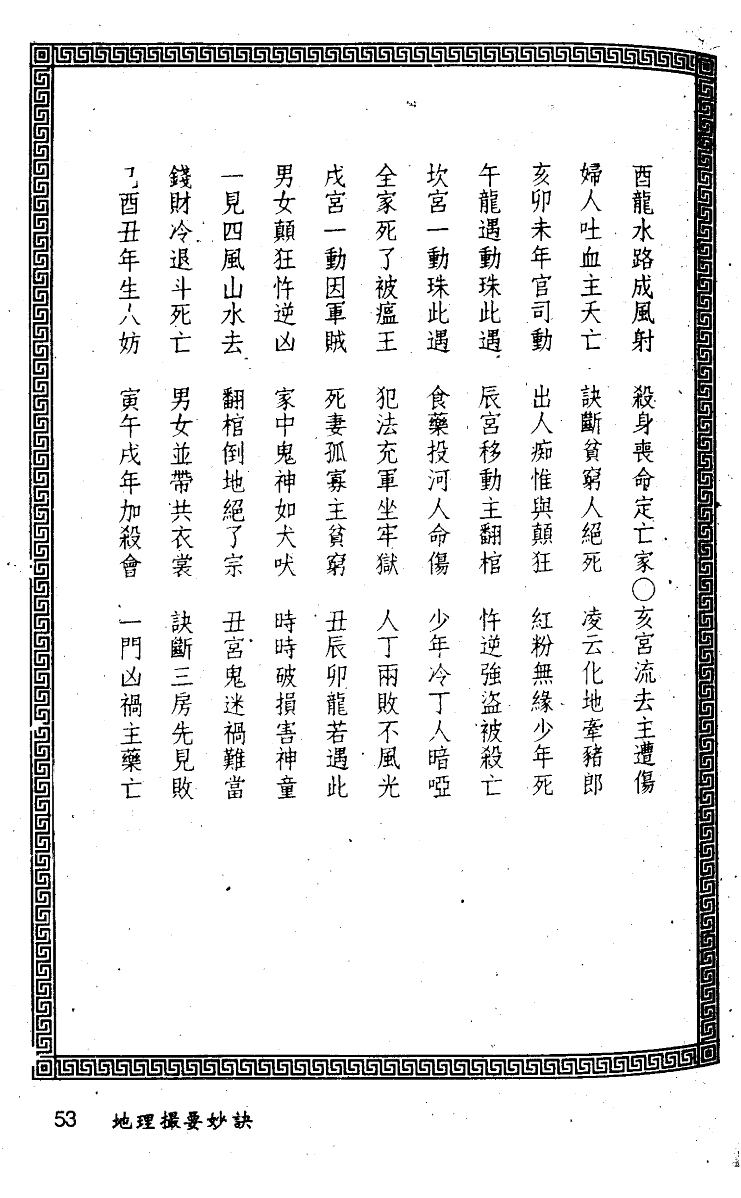 酉龍水路成風射　殺身喪命定亡家○亥宮流去主遭傷
婦人吐血主夭亡　訣斷貧窮人絕死　凌云化地牽豬郎
亥卯未年官司動　出人痴惟與顛狂　紅粉無緣少年死
午龍遇動珠此遇　辰宮移動主翻棺　忤逆強盜被殺亡
坎宮一動珠此遇　食藥投河人命傷　少年冷丁人暗啞
全家死了被瘟王　犯法充軍坐牢獄　人丁兩敗不風光
戌宮一動因軍賊　死妻孤寡主貧窮　丑辰卯龍若遇此
男女顛狂忤逆凶　家中鬼神如犬吠　時時破損害神童
一見四風山水去　翻棺倒地絕了宗　丑宮鬼迷禍難當
錢財冷退斗死亡　男女並帶共衣裳　訣斷三房先見敗
酉丑年生人妨　寅午戌年加殺會　一門凶禍主藥亡
53　地理撮要妙訣